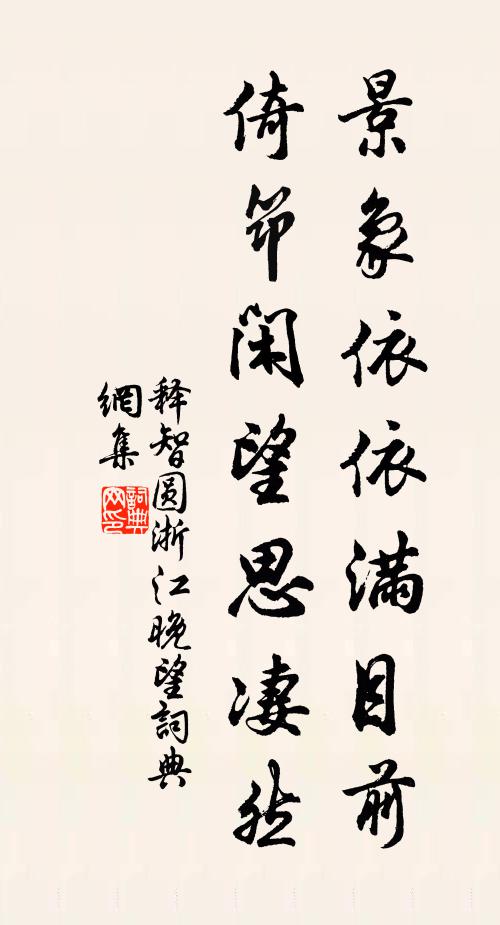 景象依依满目前
倚筇闲望思凄然
释智圆浙江晚望詞典
網集
詞典
网印